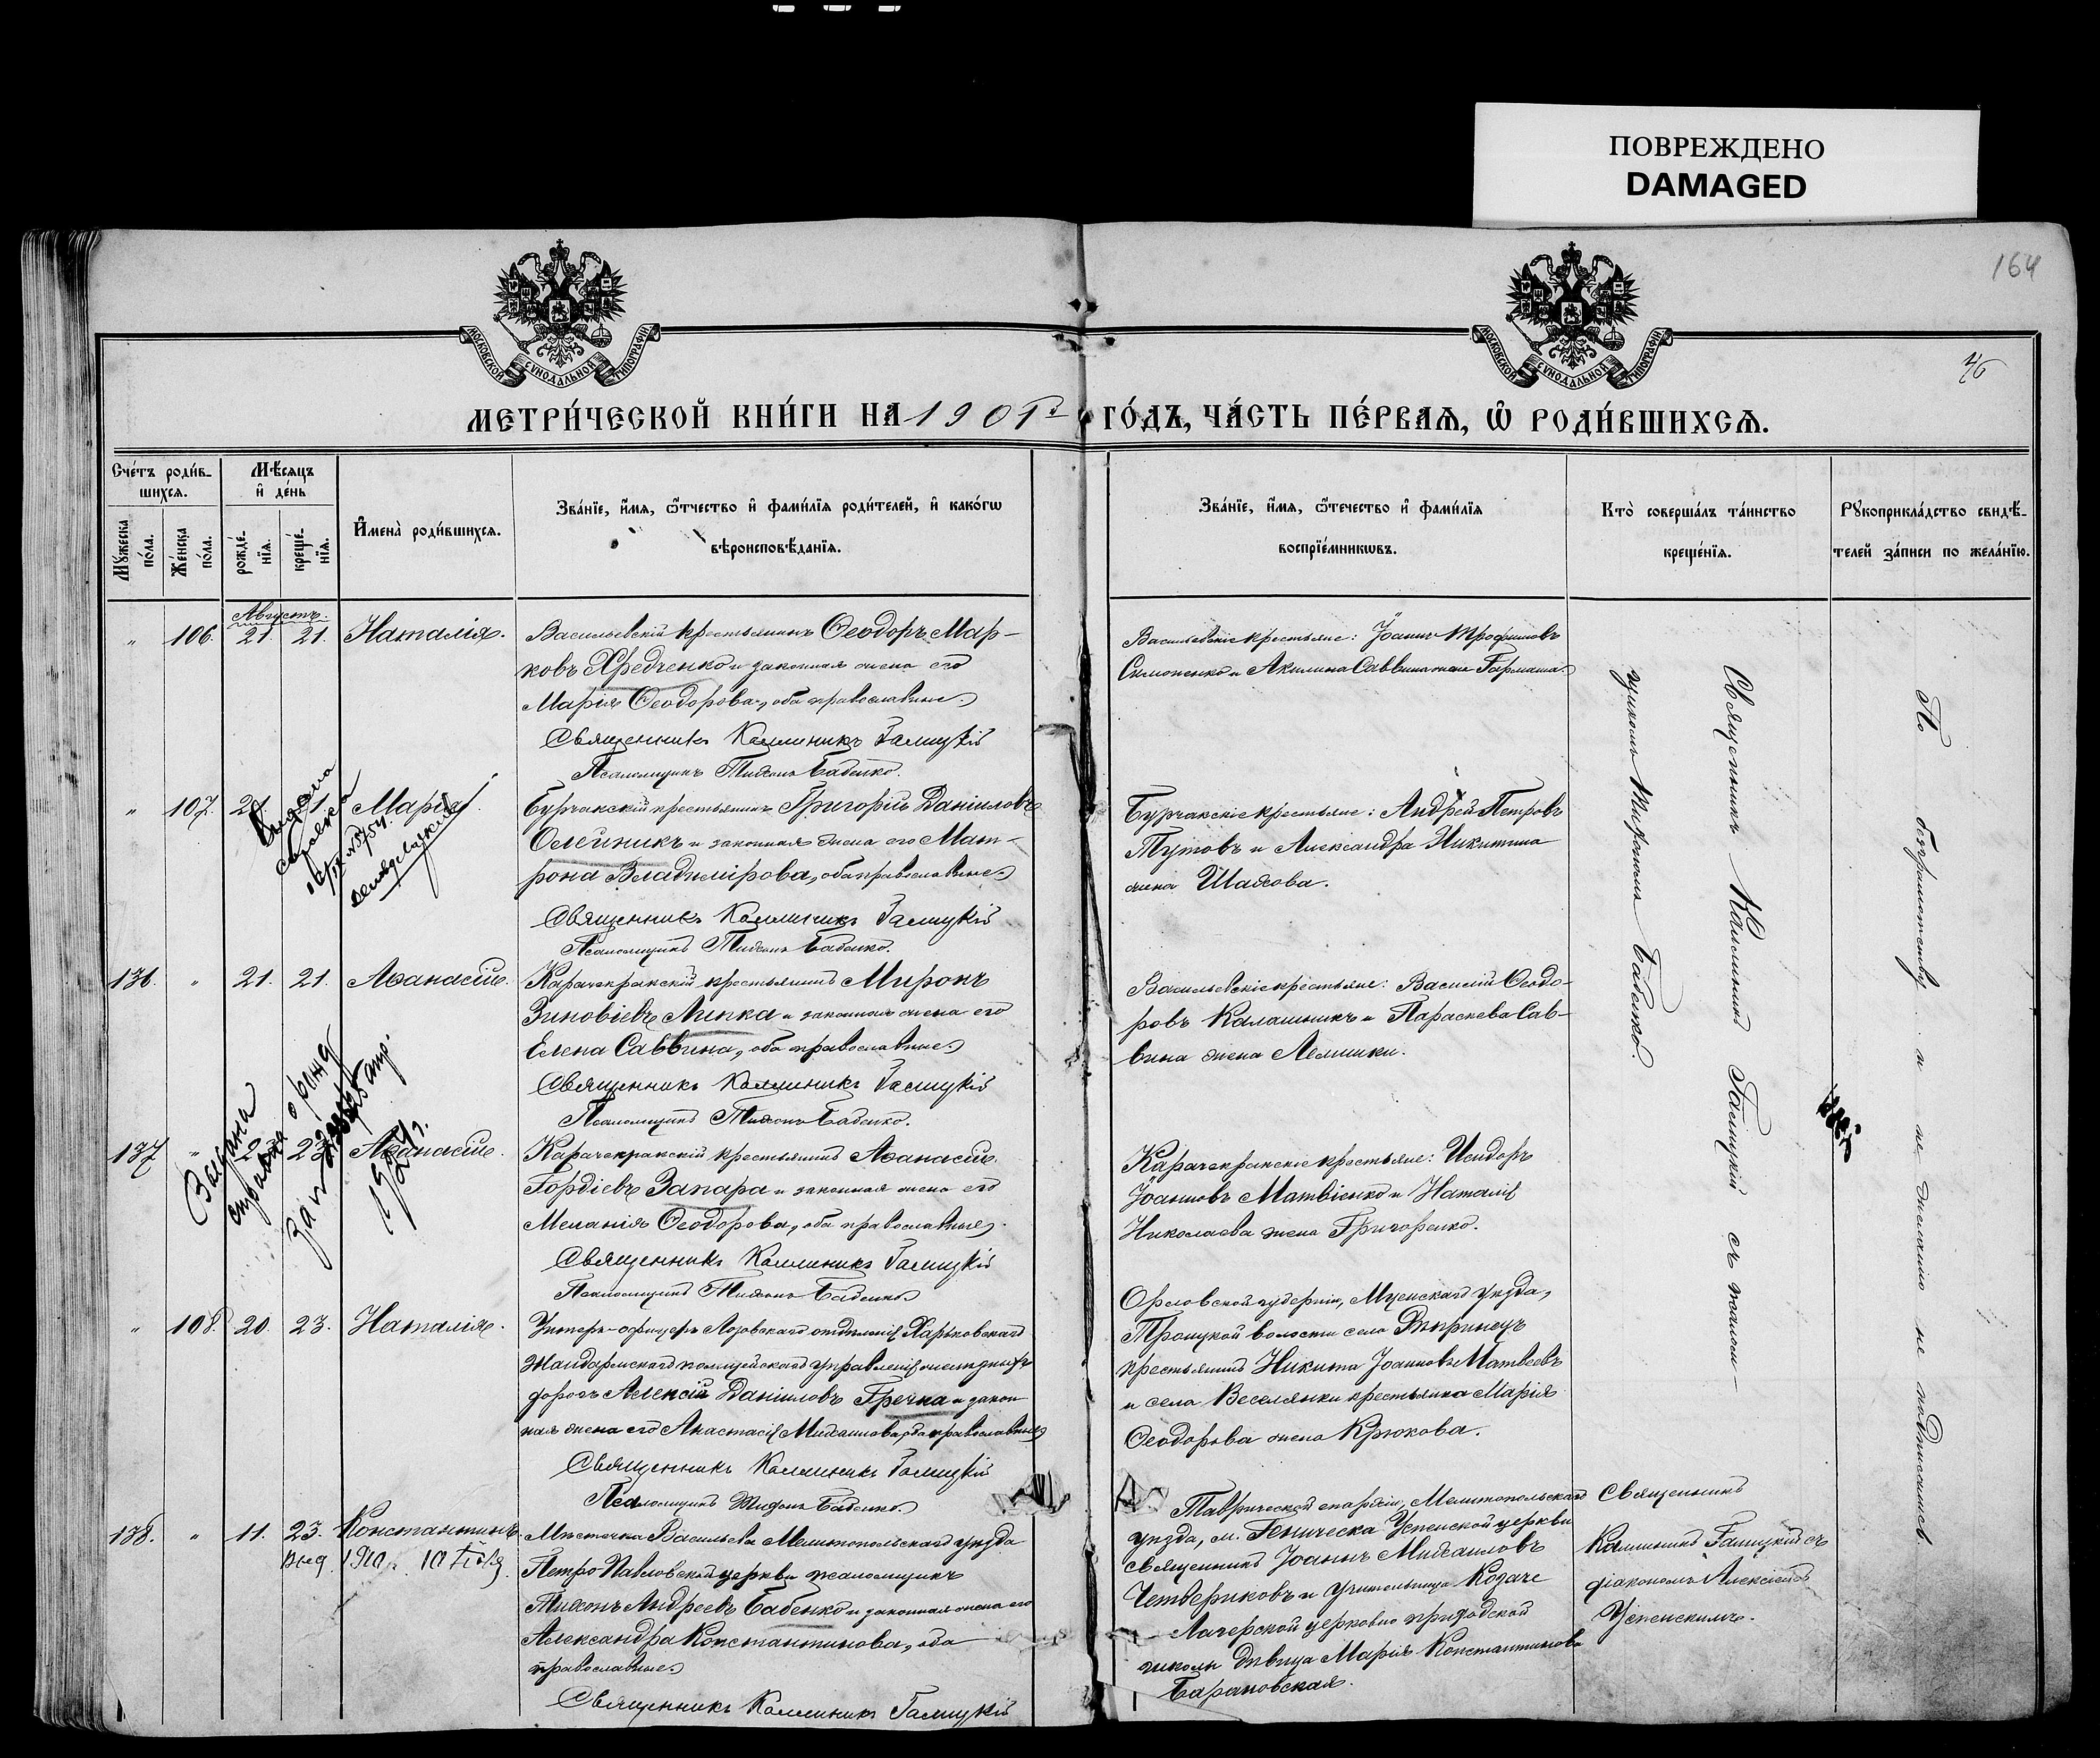 ПОВРЕЖДЕНО
DAMAGED
164
46
МОСКОВСКОЙ СѴНОДАЛЬНОЙ ТИПОГРАФІИ
МОСКОВСКОЙ СѴНОДАЛЬНОЙ ТИПОГРАФІИ
МЕТРИ́ЧЕСКОЙ КНИ́ГИ НА 1901й ГО́ДЪ, ЧА́СТЬ ПЕ́РВАѦ, Ѽ РОДИ́ВШИХСѦ.
Сче́тъ роди́в-
шихсѧ.
Мꙋ́жеска по́ла.
Же́нска по́ла.
Мѣ́сѧцъ
и҆ де́нь
рожде́-
нїѧ.
креще́-
нїѧ.
И҆мена̀ роди́вшихсѧ.
Зва́нїе, и҆́мѧ, ѻ҆́тчество и҆ фами́лїѧ роди́телей, и҆ како́гѡ
вѣроисповѣ́данїѧ.
Зва́нїе, и҆́мѧ, ѻ҆те́чество и҆ фами́лїѧ
воспрїе́мникѡвъ.
Кто̀ соверша́лъ та́инство
креще́нїѧ.
Рꙋкоприкла́дство свидѣ́-
телей за́писи по жела́нїю.
Августъ.
" 106. 21. 21. Наталія.
Васильевскій крестьянинъ Ѳеодоръ Мар-
ковъ Хредченко и законная жена его
Марія Ѳеодорова, оба православные.
Священникъ Каллиникъ Галицкій
Псаломщикъ Тихонъ Бабенко.
Васильевскіе крестьяне: Іоаннъ Трофимовъ
Симоненко и Акилина Саввина жена Гармаша.
" 107. 21. 21. Марія.
Выдана
справка
Бурчакскій крестьянинъ Григорій Даніиловъ
Олейникъ и законная жена его Мат-
рона Владимірова, оба православные.
Священникъ Каллиникъ Галицкій
Псаломщикъ Тихонъ Бабенко.
Бурчакскіе крестьяне: Андрей Петровъ
Тутовъ и Александра Никитина
жена Шахова.
136. " 21. 21. Аѳанасій.
Карачекракскій крестьянинъ Миронъ
Зиновіевъ Липка и законная жена его
Елена Саввина, оба православные.
Священникъ Каллиникъ Галицкій
Псаломщикъ Тихонъ Бабенко.
Васильевскіе крестьяне: Василій Ѳеодо-
ровъ Калашникъ и Параскева Сав-
вина жена Лемишки.
137 " 23 Аѳанасій.
Выдана
справка о рожд
за №
192 г.
Карачекракскій крестьянинъ Аѳанасій
Гордіевъ Запара и законная жена его
Меланія Ѳеодорова, оба православные.
Священникъ Каллиникъ Галицкій
Псаломщикъ Тихонъ Бабенко
Карачекракскіе крестьяне: Исидоръ
Іоанновъ Матвіенко и Наталія
Николаева жена Григоренко.
" 108. 20. 23. Наталія.
Унтеръ-офицеръ Лозовскаго отдѣленія Харьковскаго
Жандармскаго полицейскаго управленія желѣзныхъ
дорогъ Алексій Даніиловъ Гречка и закон
ная жена его Анастасія Михаилова, оба православные
Священникъ Каллиникъ Галицкій
Псаломщикъ Тихонъ Бабенко.
Орловской губерніи, Мценскаго уѣзда,
Троицкой волости села
крестьянинъ Никита Іоанновъ Матвеевъ
и села Веселянки крестьянка Марія
Ѳеодорова жена Крюкова.
138. " 11. 23. Константинъ
выд. 1910 г. 10
Мѣстечка Васильева Мелитопольскаго уѣзда
Петро Павловской церкви псаломщикъ
Тихонъ Андреевъ Бабенко и законная жена его
Александра Константинова, оба
православные.
Священникъ Каллиникъ Галицкій
Таврической епархіи, Мелитопольскаго
уѣзда, м. Геническа Успенской церкви
священникъ Іоаннъ Михаиловъ
Четвериковъ и учительница Козаче
Лагерской церковно приходской
школы дѣвица Марія Константинова
Барановская.
Священникъ
Каллиникъ Галицкій съ
діакономъ Алексіемъ
Успенскимъ.
Священникъ Каллиникъ Галицкій съ псалом-
щикомъ Тихономъ Бабенко.
По безграмотству и не желанію не подписались